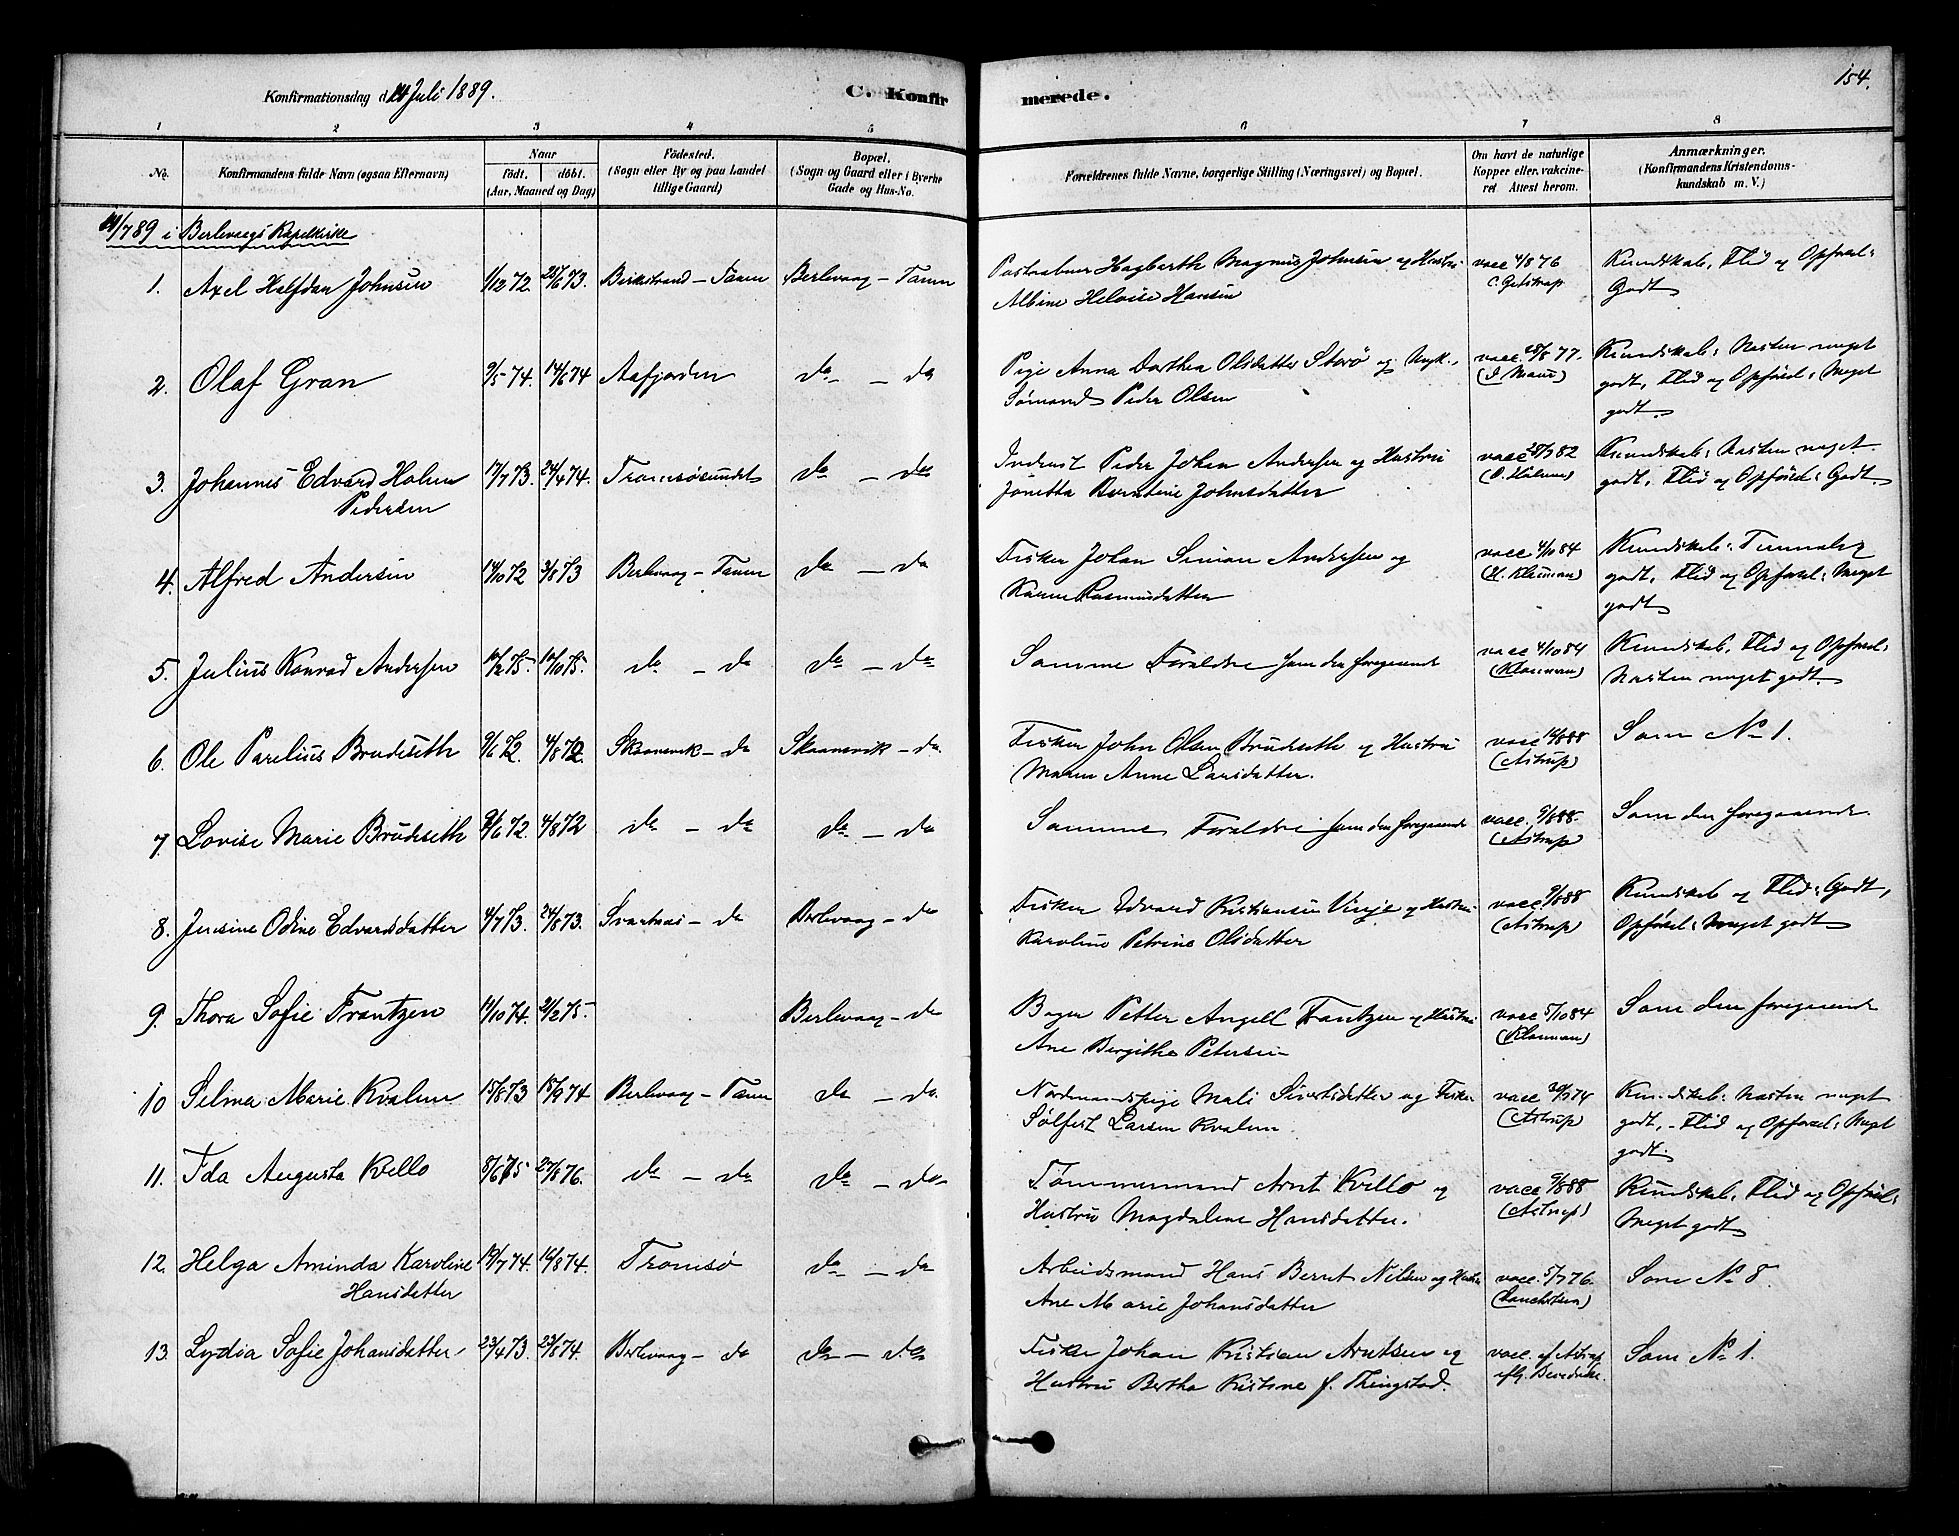 154.
Konfirmationsdag d. 14 Juli 1889. C. Konfirmerede.
1 2 3 4 5 6 7 8
No. Konfirmandens fulde Navn (ogsaa Efternavn) Naar födt. döbt. (Aar, Maaned og Dag) Födested. (Sogn eller By og paa Landet tillige Gaard) Bopæl. (Sogn og Gaard eller i Byerne Gade og Hus-No. Forældrenes fulde Navne, borgerlige Stilling (Næringsvei) og Bopæl. Om havt de naturlige Kopper eller vakcineret Attest herom. Anmærkninger. (Konfirmandens Kristendomskundskab m. V.)
14/7 89 i Berlevaags Kapelkirke
1. Axel Halfdan Johnsen 1/12 72. 28/6 73. Birkestrand – Tanen Berlevaag – Tanen Hagbarth Magnus Johnsen og Hustru vacc 4/8 76 Kundskab, Flid og Opførsel:
Albine Heloise Hansen Godt
2. Olaf Gran 9/5 74. 14/6 74 Aafjorden do – do Pige Anna Dorthea Olsdatter Storø og Ungk. vacc. 28/8 77. Kundskab: Næsten meget
Sømand Peder Olsen godt, Flid og Opførsel: Meget
godt.
3. Johannes Edvard Holm 17/7 73. 24/4 74. Tromsøsundet do – do Inderst Peder Johan Andersen og Hustru vacc 28/7 82 Kundskab: Næsten meget
Pedersen Jonetta Berntine Johnsdatter godt, Flid og Opførsel: Godt
4. Alfred Andersen 14/10 72 3/8 73 Berlevaag – Tanen do – do Fisker Johan Simon Andersen og vacc 4/10 84 Kundskab: Temmelig
Karen Rasmusdatter (H. Klouman) godt, Flid og Opførsel: Meget
godt
5. Julius Konrad Andersen 10/2 75. 10/10 75. do – do do – do Samme Forældre som den foregaaende vacc 4/10 84 Kundskab, Flid og Opførsel:
(Klouman) Næsten meget godt.
6. Ole Parelius Brudeseth 9/6 72. 4/8 72. Skaanevik – do Skaanevik – do. Fisker John Olsen Brudseth og Hustru vacc 14/8 88 Som No 1.
Maren Anne Larsdatter. (Astrup)
7. Lovise Marie Brudseth 9/6 72. 4/8 72 do – do do – do Samme Forældre som den foregaaende vacc. 9/8 88. Som den foregaaende
(Astrup)
8. Jensine Odine Edvardsdatter 4/7 73. 24/8 73. Svartnæs – do Berlevaag – do Fisker Edvard Kristiansen Vinje og Hustru vacc 9/8 88 Kundskab og Flid: Godt,
Karoline Petrine Olsdatter (Astrup) Opførsel: Meget godt
9. Thora Sofie Frantzen 11/10 74. 21/2 75. Berlevaag – do Bager Petter Angell Frantzen og Hustru vacc 5/10 84 Som den foregaaende
Ane Bergithe Petersen (Klouman)
10 Selma Marie Kvalen 15/8 73 15/9 74 Berlevaag – Tanen do – do. Nordmandspige Mali Sivertsdatter og Fisker vacc 30/9 74 Kundskab: Næsten meget
Sølfest Larsen Kvalen. (Astrup) godt, – Flid og Opførsel: Meget
godt.
11. Ida Augusta Kvello 8/6 75 27/8 76. do – do do – do Tømmermand Arnt Kvello og vacc 9/8 88 Kundskab, Flid og Opførsel:
Hustru Magdalene Hansdatter. (Astrup) Meget godt
12. Helga Aminda Karoline 19/7 74. 16/8 74. Tromsø do – do Arbeidsmand Hans Berret Nilsen og Hustru vacc. 5/7 76. Som No 8.
Hansdatter Ane Marie Johansdatter
13. Lydia Sofie Johansdatter 23/4 73. 23/8 74. Berlevaag – do do – do Fisker Johan Kristian Arntsen og vacc. af Astrup Som No 1.
Hustru Bertha Kristine f. Thingstad.